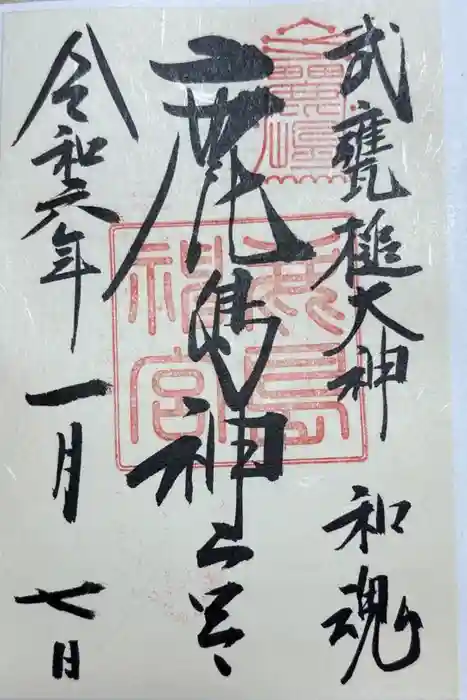 武甕槌大神 和魂
鹿島神宮
令和六年 一月 七日
鹿島
神宮